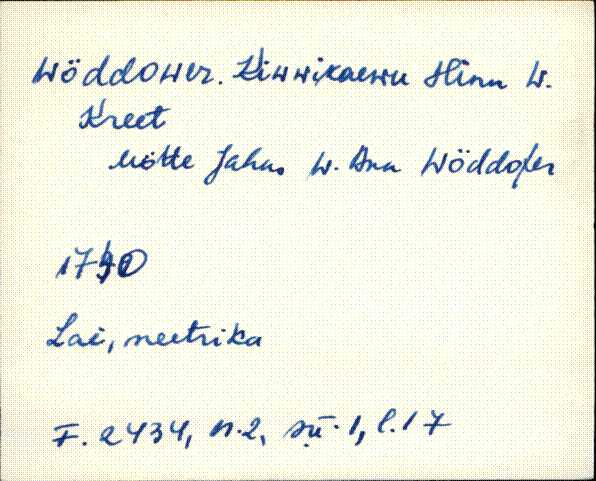 Wöddower. Kiwwikaewu Hinn W.
Kreet
Mötte Jahn W. Ann Wöddofer
1740
Lai, meetrika
F. 2434, n.2, sü.1, l.17